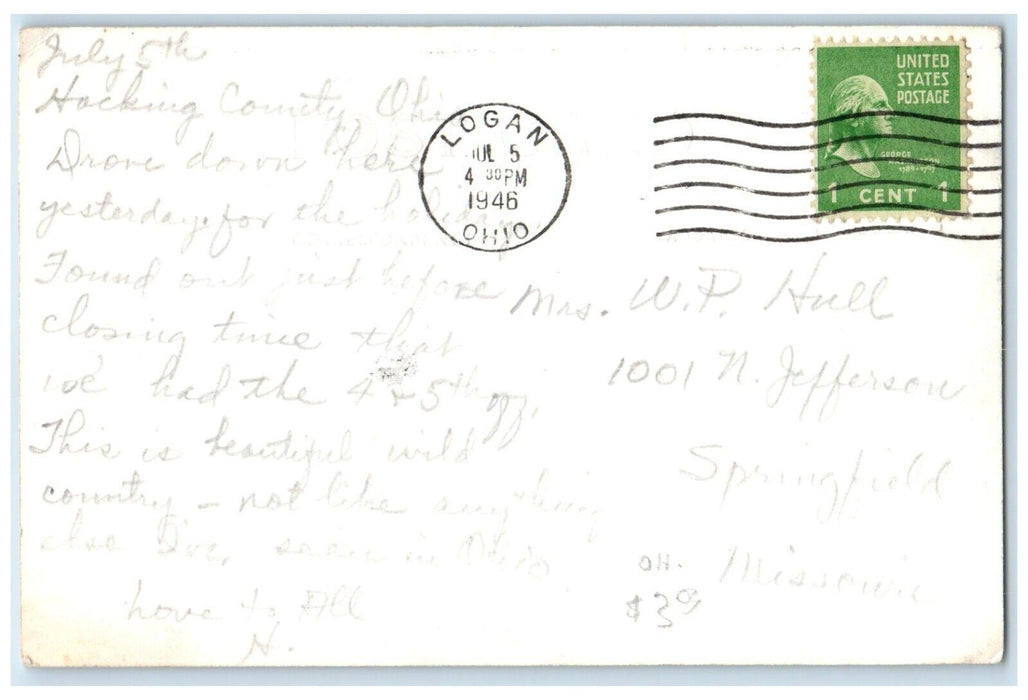 July 5th
Hocking County, Ohio
Drove down here
yesterday for the holiday.
Found out just before
closing time that
we had the 4 & 5th off.
This is beautiful wild
country - not like anything
else I've seen in Ohio
Love to All
H.
LOGAN
JUL 5
4 30 PM
1946
OHIO
UNITED
STATES
POSTAGE
GEORGE
WASHINGTON
1789-1797
1 CENT 1
Mrs. W.P. Hull
1001 N. Jefferson
Springfield
Missouri
OH.